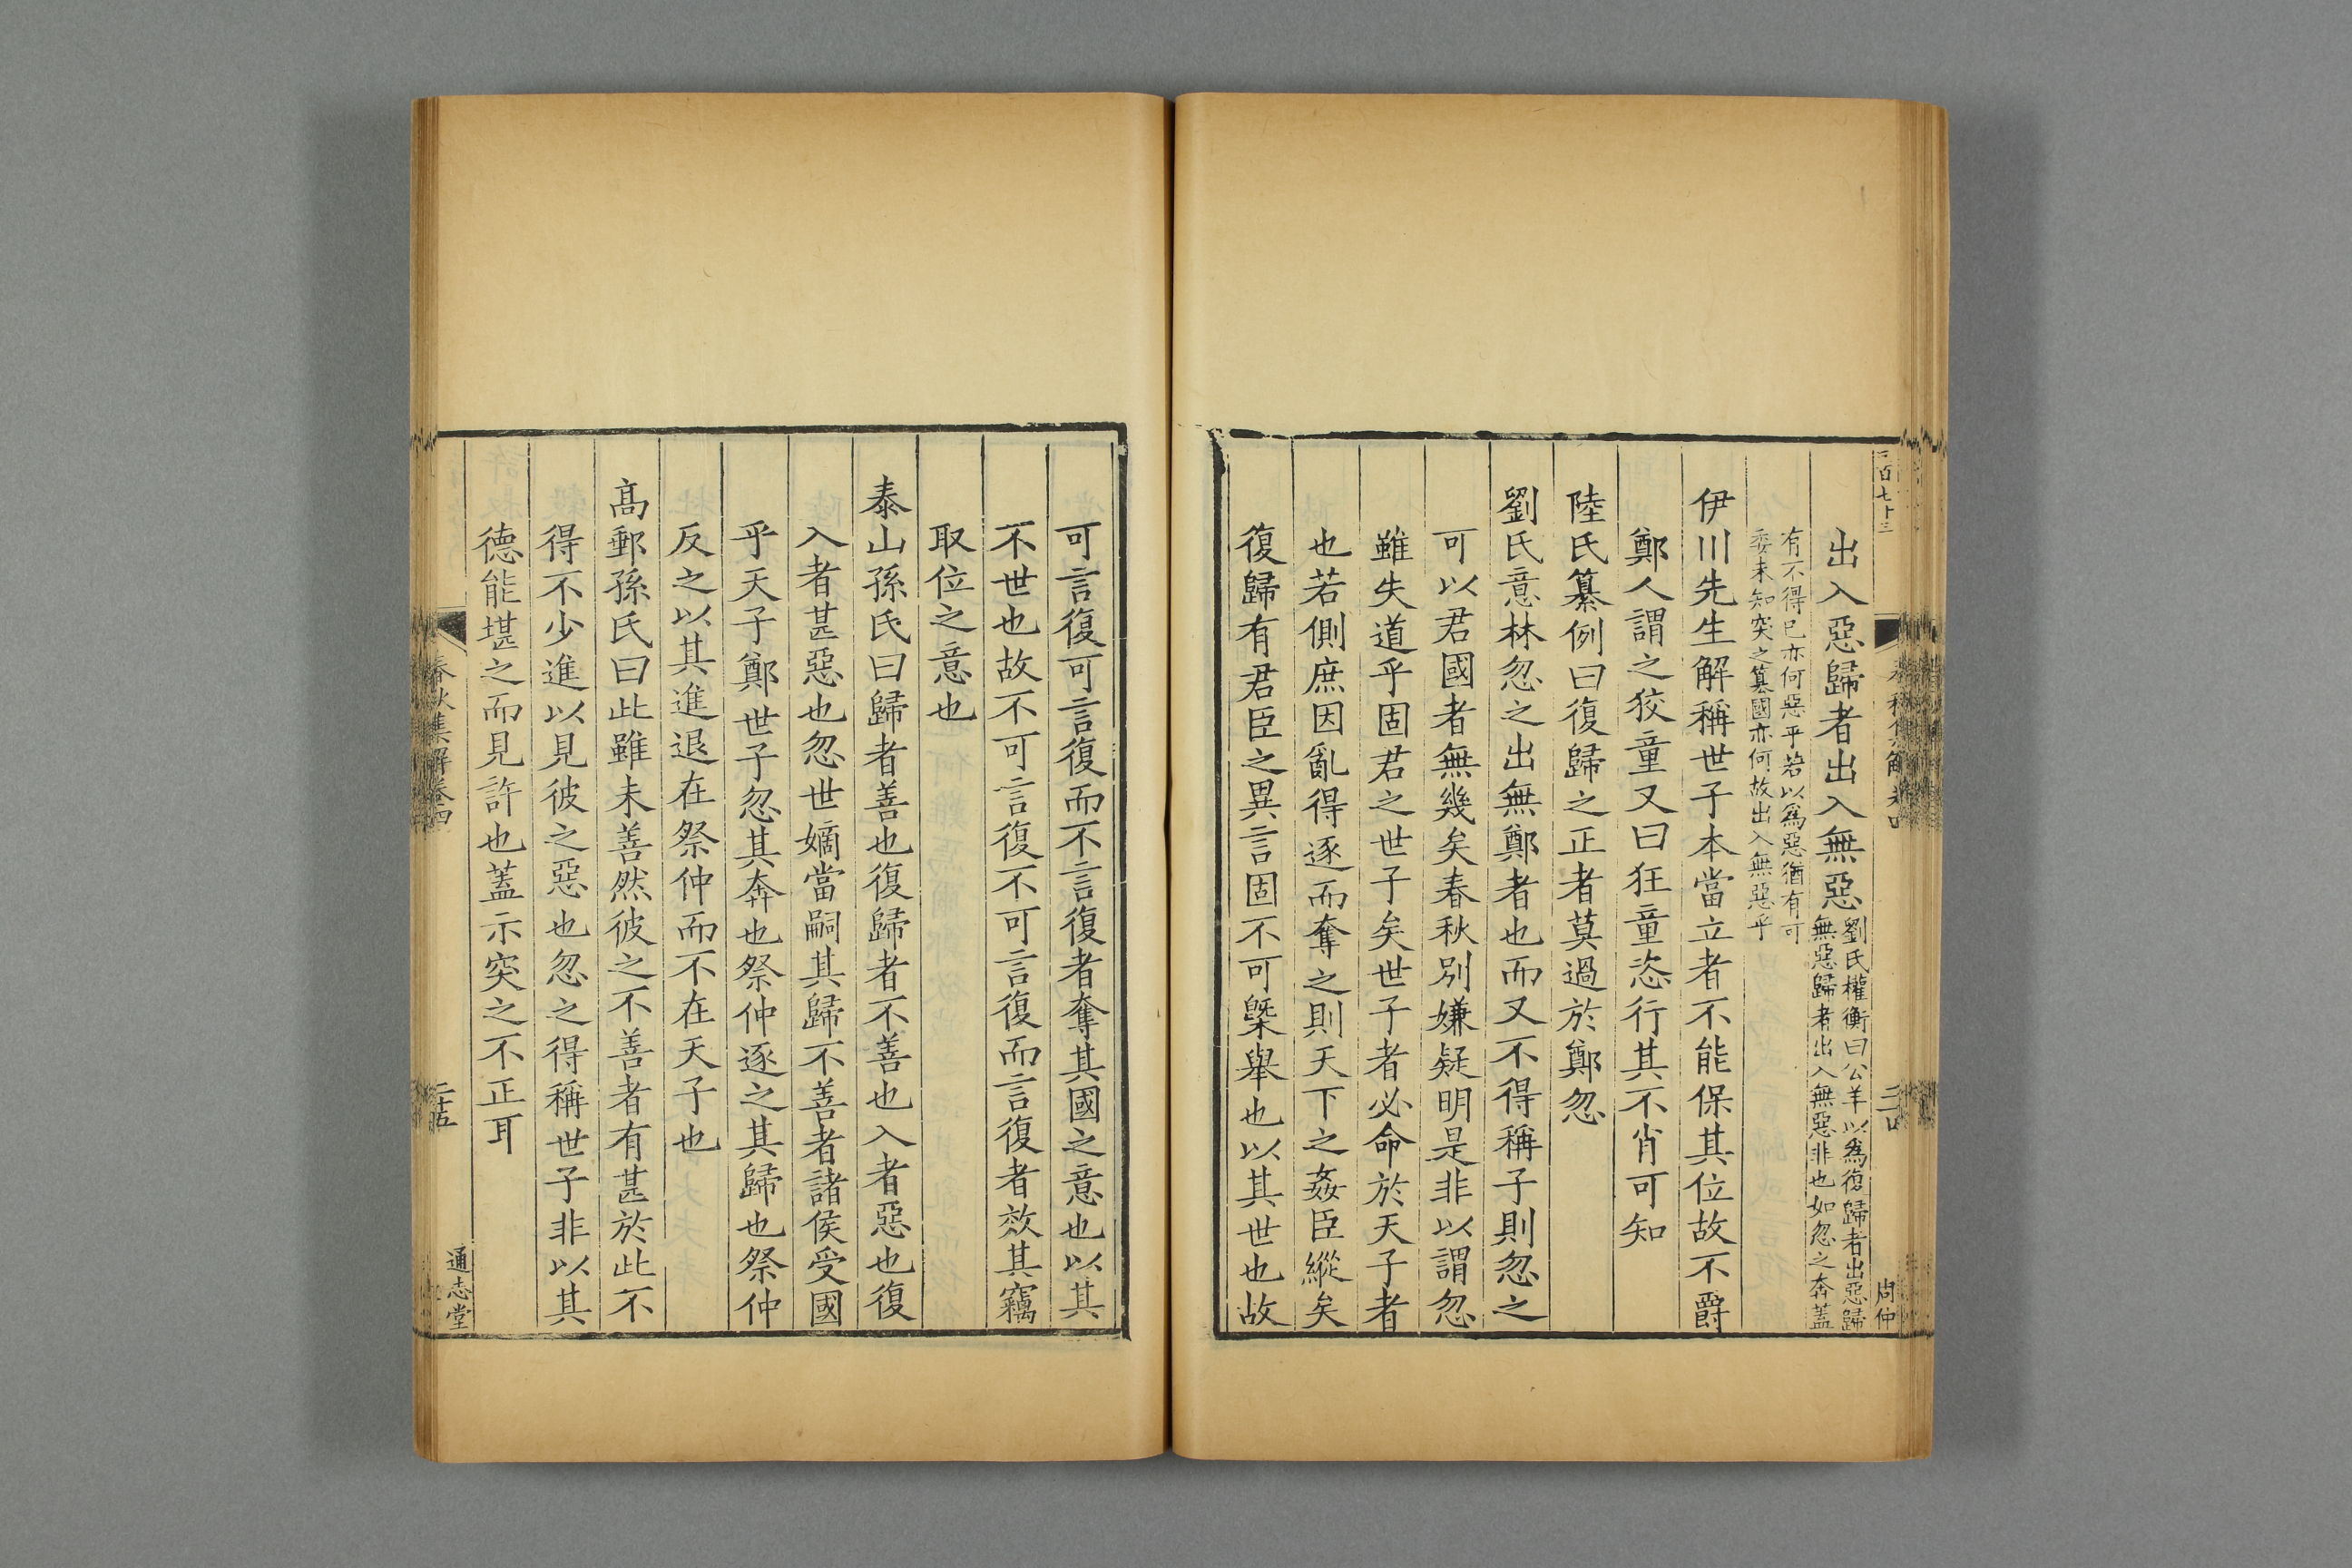 出入惡歸者出入無惡劉氏權衡曰公羊以爲復歸者出惡歸
無惡歸者出入無惡非也如忽之奔蓋
有不得已亦何惡乎若以爲惡猶有可
委未知突之篡國亦何故出入無惡乎
伊川先生解稱世子本當立者不能保其位故不爵
鄭人謂之狡童又曰狂童恣行其不肖可知
陸氏纂例曰復歸之正者莫過於鄭忽
劉氏意林忽之出無鄭者也而又不得稱子則忽之
可以君國者無幾矣春秋別嫌疑明是非以謂忽
雖失道乎固君之世子矣世子者必命於天子者
也若側庶因亂得逐而奪之則天下之姦臣縱矣
復歸有君臣之異言固不可槩舉也以其世也故
周仲
可言復可言復而不言復者奪其國之意也以其
不世也故不可言復不可言復而言復者效其竊
取位之意也
泰山孫氏曰歸者善也復歸者不善也入者惡也復
入者甚惡也忽世嫡當嗣其歸不善者諸侯受國
乎天子鄭世子忽其奔也祭仲逐之其歸也祭仲
反之以其進退在祭仲而不在天子也
高郵孫氏曰此雖未善然彼之不善者有甚於此不
得不少進以見彼之惡也忽之得稱世子非以其
德能堪之而見許也蓋示突之不正耳
春秋集解卷四
二十五
通志堂